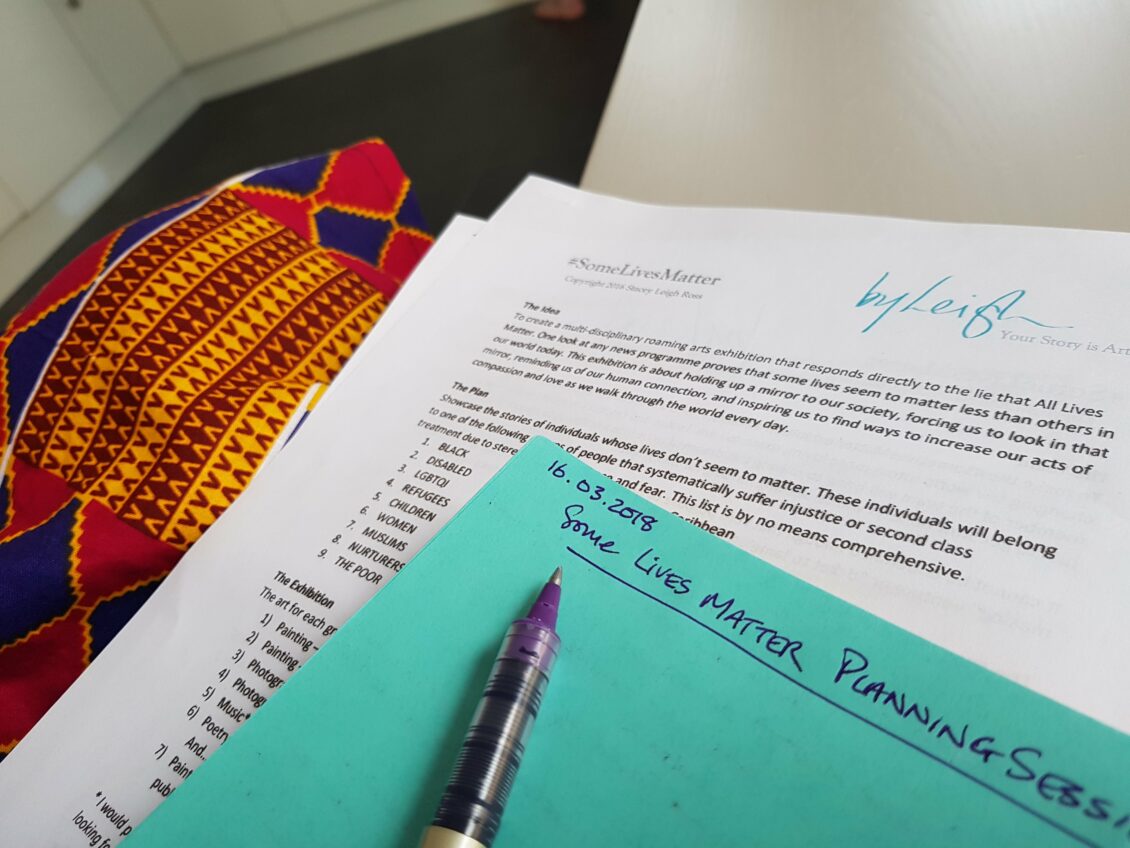 #SomeLivesMatter
Copyright 2016 Stacey Leigh Ross
byLeigh
Your Story is Art
The Idea
To create a multi-disciplinary roaming arts exhibition that responds directly to the lie that All Lives
Matter. One look at any news programme proves that some lives seem to matter less than others in
our world today. This exhibition is about holding up a mirror to our society, forcing us to look in that
mirror, reminding us of our human connection, and inspiring us to find ways to increase our acts of
compassion and love as we walk through the world every day.
The Plan
Showcase the stories of individuals whose lives don't seem to matter. These individuals will belong
to one of the following of people that systematically suffer injustice or second class
treatment due to and fear. This list is by no means comprehensive.
1. BLACK
2. DISABLED
3. LGBTQI
4. REFUGEES
5. CHILDREN
6. WOMEN
7. MUSLIMS
8. NURTURERS
9. THE POOR
The Exhibition
The art for each
1) Painting –
2) Painting
3)
4)
5) Music*
6) Poetry
And..
7) Paint
* I would
looking
16.03.2018
Some Lives MATTER PLANNING